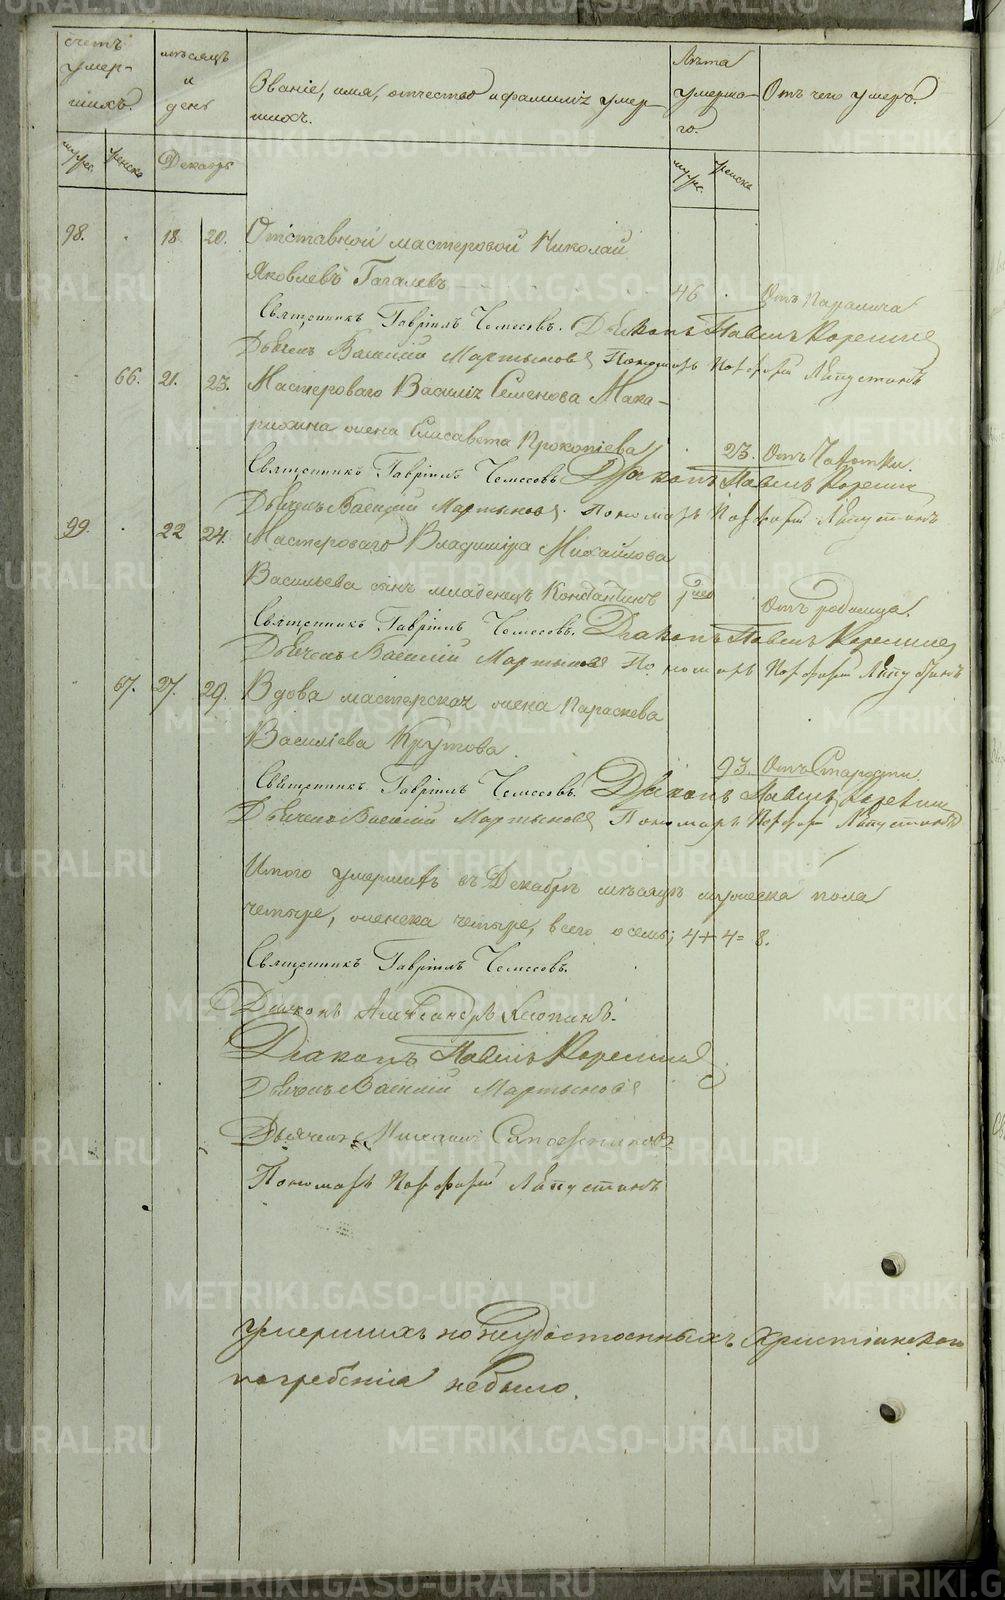 счетъ умер- шихъ.
мѣсяцъ и день
Званіе, имя, отчество и фамилія умер-
шихъ.
Лѣта умерша- го.
Отъ чего умеръ.
мужес. женска
Декабрь
мужес. женска
98. 18. 20. Отставной мастеровой Николай
Яковлевъ 46 Отъ Паралича
Священникъ Гавріилъ Чемесовъ. Діаконъ Павелъ Корелинъ
Дьячекъ Василій Мартыновъ Пономарь Порфирій Лапустинъ
66. 21. 23. Мастероваго Василія Семенова Мака-
рихина жена Елисавета Прокопіева 23. Отъ Чахотки.
Священникъ Гавріилъ Чемесовъ Діаконъ Павелъ Корелинъ
Дьячекъ Василій Мартыновъ. Пономарь Порфирій Лапустинъ
99. 22 24. Мастероваго Владиміра Михайлова
Васильева сынъ младенецъ Константинъ Отъ родимца.
Священникъ Гавріилъ Чемесовъ. Діаконъ Павелъ Корелинъ
Дьячекъ Василій Мартыновъ Пономарь Порфирій Лапустинъ
67. 27. 29. Вдова мастерская жена Параскева
Василіева Крутова 93. Отъ Старости.
Священникъ Гавріилъ Чемесовъ. Діаконъ Павелъ Корелинъ
Дьячекъ Василій Мартыновъ Пономарь Порфирій Лапустинъ
Итого умершихъ въ Декабрѣ мѣсяцѣ мужеска пола
четыре, женска четыре, всего осемь; 4+4=8.
Священникъ Гавріилъ Чемесовъ.
Діаконъ Александръ
Діаконъ Павелъ Корелинъ
Дьячекъ Василій Мартыновъ
Дьячекъ Михаилъ Сапожниковъ
Пономарь Порфирій Лапустинъ
Умершихъ но неудостоенныхъ Христіанскаго
погребенія небыло.
METRIKI.GASO-URAL.RU